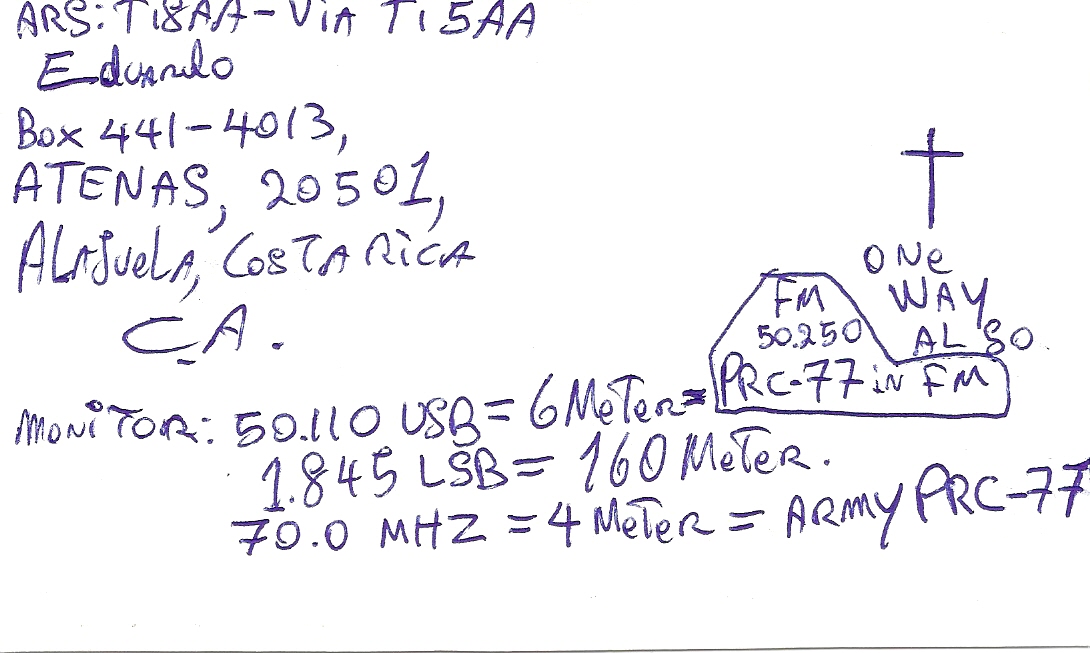 ARS: Ti8AA - Via Ti5AA
Eduardo
Box 441-4013,
ATENAS, 20501,
ALAJueLA, COSTA RiCA
C.A.
ONe
WAY
ALSO.
FM
50.250
PRC-77 iN FM
MONiTOR: 50.110 USB = 6 MeTeR =
1.845 LSB = 160 MeTeR.
70.0 MHZ = 4 MeTeR = ARMY PRC-77